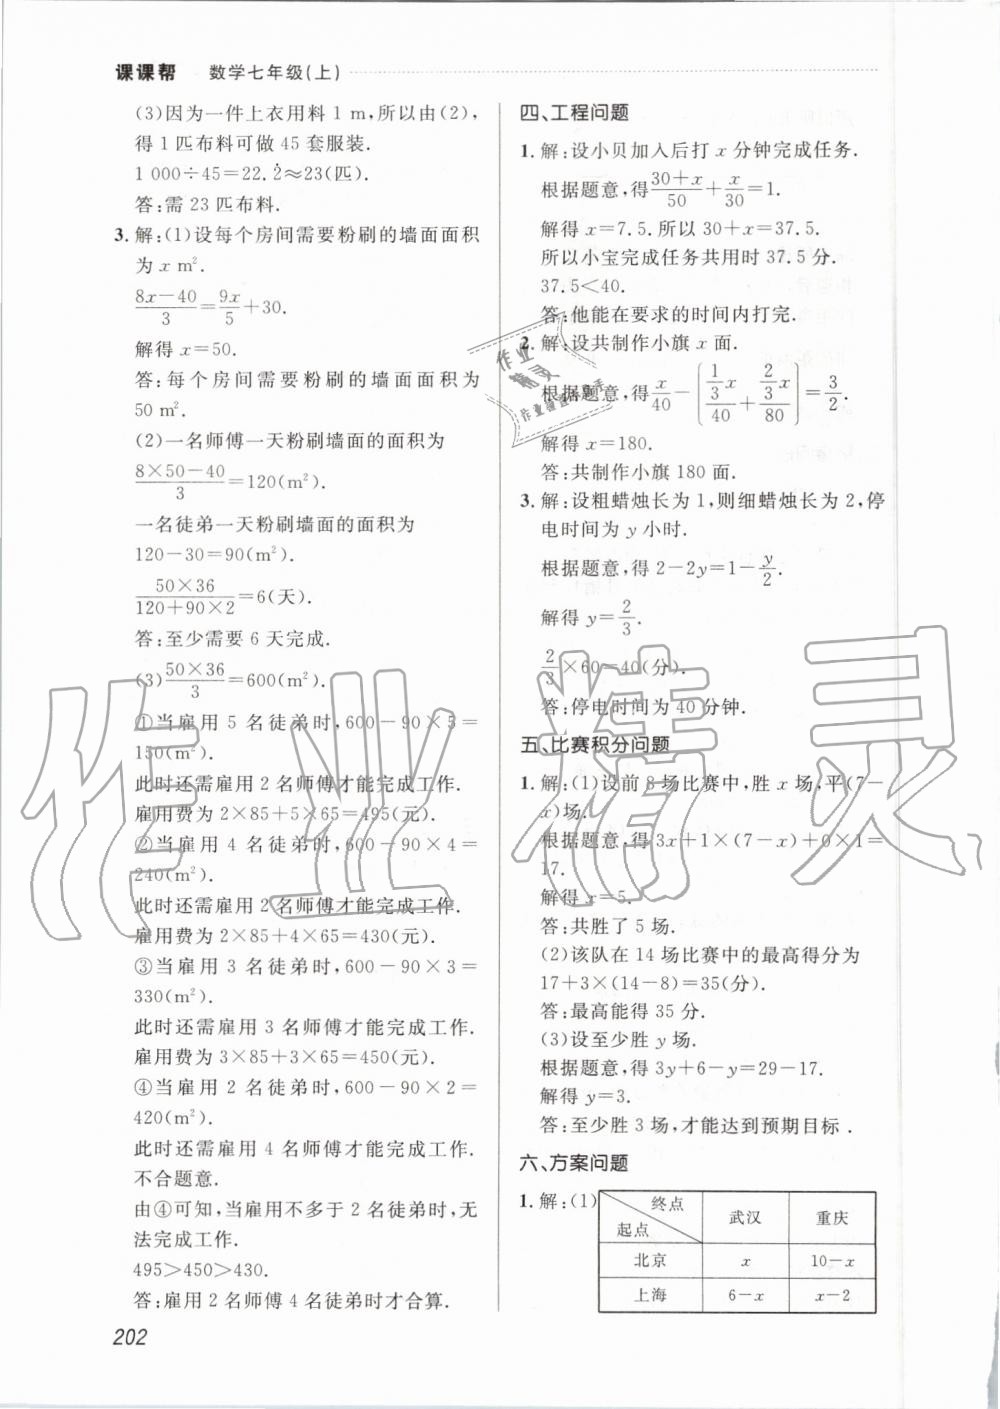 课课帮 数学七年级(上)
(3)因为一件上衣用料 1 m,所以由(2),
得 1 匹布料可做 45 套服装.
1 000÷45=22.2̇≈23(匹).
答:需 23 匹布料.
3. 解:(1)设每个房间需要粉刷的墙面面积
为 x m².
(8x-40)/3=9x/5+30.
解得 x=50.
答:每个房间需要粉刷的墙面面积为
50 m².
(2)一名师傅一天粉刷墙面的面积为
(8×50-40)/3=120(m²).
一名徒弟一天粉刷墙面的面积为
120-30=90(m²).
(50×36)/(120+90×2)=6(天).
答:至少需要 6 天完成.
(3)(50×36)/3=600(m²).
①当雇用 5 名徒弟时,600-90×5=
150(m²).
此时还需雇用 2 名师傅才能完成工作.
雇用费为 2×85+5×65=495(元).
②当雇用 4 名徒弟时,600-90×4=
240(m²).
此时还需雇用 2 名师傅才能完成工作.
雇用费为 2×85+4×65=430(元).
③当雇用 3 名徒弟时,600-90×3=
330(m²).
此时还需雇用 3 名师傅才能完成工作.
雇用费为 3×85+3×65=450(元).
④当雇用 2 名徒弟时,600-90×2=
420(m²).
此时还需雇用 4 名师傅才能完成工作.
不合题意.
由④可知,当雇用不多于 2 名徒弟时,无
法完成工作.
495>450>430.
答:雇用 2 名师傅 4 名徒弟时才合算.
四、工程问题
1. 解:设小贝加入后打 x 分钟完成任务.
根据题意,得(30+x)/50+x/30=1.
解得 x=7.5. 所以 30+x=37.5.
所以小宝完成任务共用时 37.5 分.
37.5<40.
答:他能在要求的时间内打完.
2. 解:设共制作小旗 x 面.
根据题意,得x/40-(1/3x/40+2/3x/80)=3/2.
解得 x=180.
答:共制作小旗 180 面.
3. 解:设粗蜡烛长为 1,则细蜡烛长为 2,停
电时间为 y 小时.
根据题意,得 2-2y=1-y/2.
解得 y=2/3.
2/3×60=40(分).
答:停电时间为 40 分钟.
五、比赛积分问题
1. 解:(1)设前 8 场比赛中,胜 x 场,平(7-
x)场.
根据题意,得 3x+1×(7-x)+0×1=
17.
解得 x=5.
答:共胜了 5 场.
(2)该队在 14 场比赛中的最高得分为
17+3×(14-8)=35(分).
答:最高能得 35 分.
(3)设至少胜 y 场.
根据题意,得 3y+6-y=29-17.
解得 y=3.
答:至少胜 3 场,才能达到预期目标.
六、方案问题
1. 解:(1)
终点 起点 武汉 重庆
北京 x 10-x
上海 6-x x-2
202
作业精灵